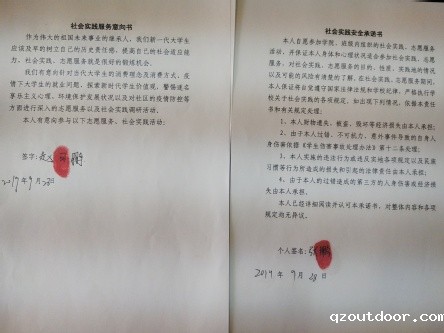 社会实践服务意向书
作为伟大的祖国未来事业的继承人，我们新一代大学生
应该及早的树立自己的历史责任感，提高自己的社会适应能
力。社会实践、志愿服务就是很好的锻炼机会。
我们有意向针对当代大学生的消费理念及消费方式，疫
情下大学生的就业问题，探索新时代学生价值观，警惕迷名
享乐主义心理，环境保护发展状况以及对社区的疫情防控等
方面进行深入的志愿服务以及社会实践调研活动。
本人有意向参与以下志愿服务、社会实践活动：
签字：
9月28日
社会实践安全承诺书
本人自愿参加学院、班级内组织的社会实践、志愿服务
活动，并保证本人身体和心理状况适合参加社会实践、志愿
服务，对社会实践、志愿服务的目的、性质、实践地的情况
以及可能的风险有清楚的了解。在社会实践、志愿服务期间，
本人保证将自觉遵守国家法律法规和学校纪律，严格执行学
校关于社会实践的各项规定，如出现下列情况，依据本责任
书和有关规定处理：
1、本人财物遗失、被盗、毁坏等经济损失由本人承担；
2、由于本人过错、不可抗力、意外事件导致的自身人
身伤害依据《学生伤害事故处理办法》第十二条处理；
3、本人实施的违法行为或违反实地各项规定以及风俗
习惯等行为所造成的损失和引起的法律责任由本人承担；
4、由于本人的过错造成的第三方的人身伤害或经济损
失由本人承担。
本人已经详细阅读并认可本承诺书，对整体内容和各项
规定均无异议。
个人签名：张鹏
2019年 9月 28日
qzoutdoor.com